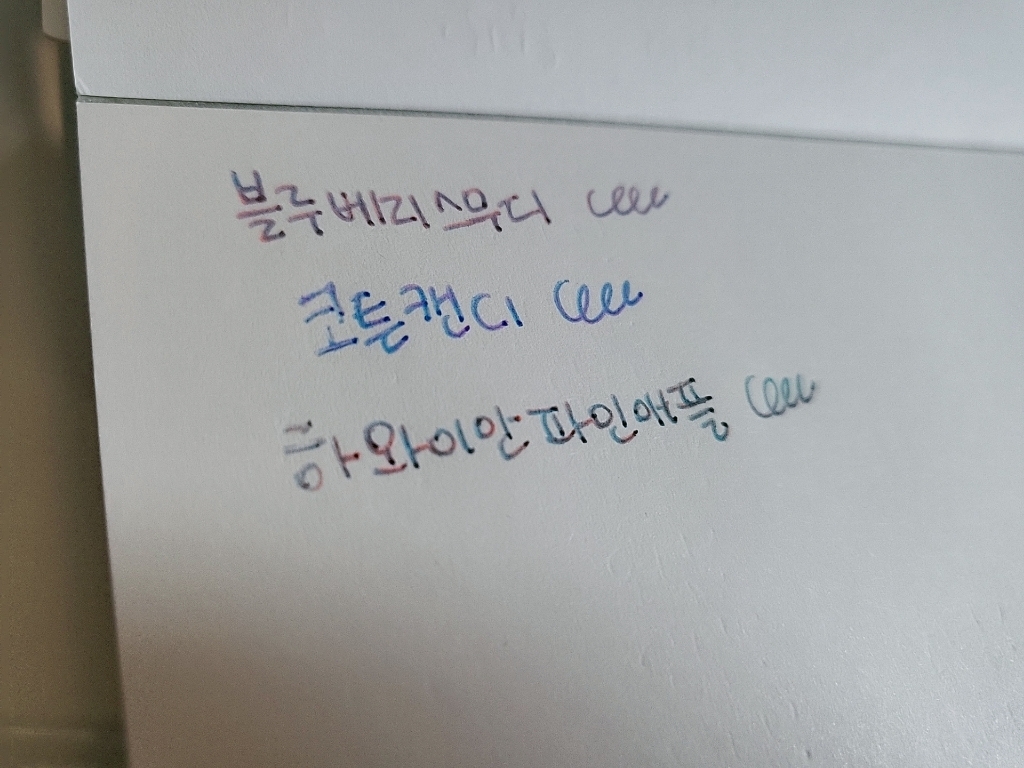 블루베리스무디
코튼캔디
하와이안파인애플